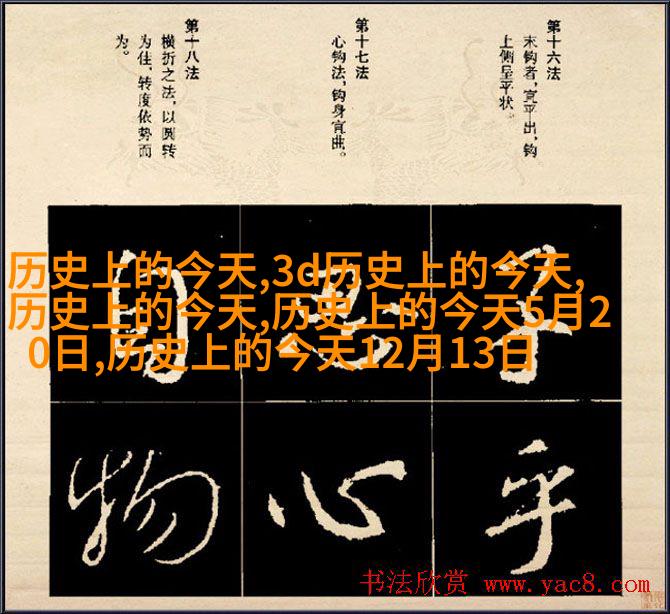 第十六法
末钩者，宜平出，钩
上侧呈平状
第十七法
心钩法，钩身宜曲。
第十八法
横折之法，以圆转
为佳，转度依势而
为。
历史上的今天,3d历史上的今天,
历史上的今天,历史上的今天5月2
0日,历史上的今天12月13日
物 心 乎
书法欣赏 www.yac8.com